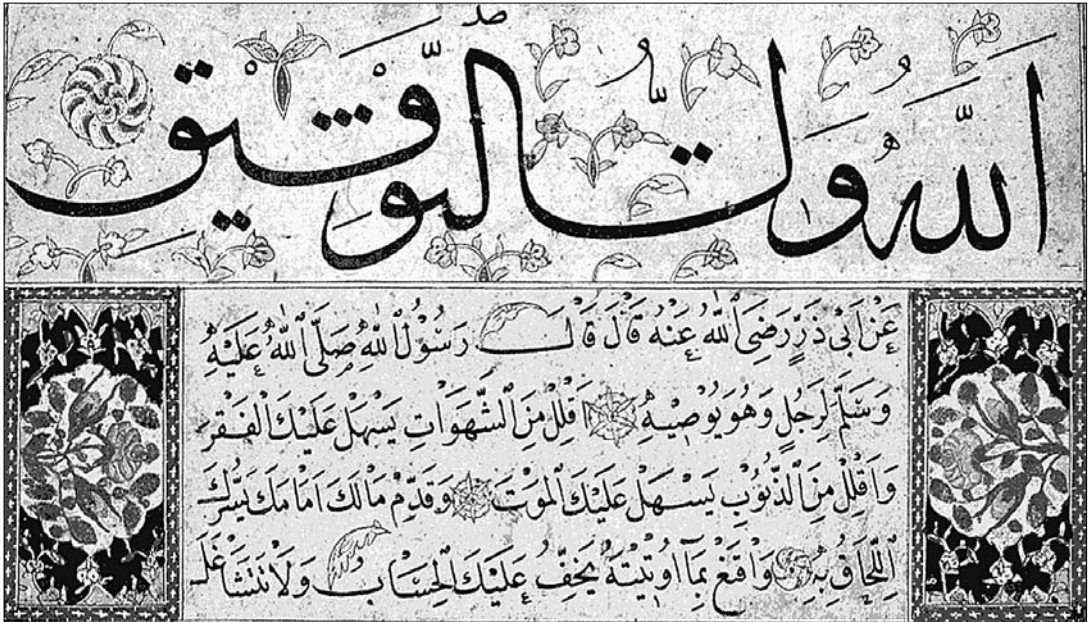 الله ولي التوفيق
عَنْ اَبِى ذَرٍّ رَضِىَ اللهُ عَنْهُ قَالَ قَالَ رَسُولُ اللهِ صَلَّى اللهُ عَلَيْهِ
وَسَلَّمَ لِرَجُلٍ وَهُوَ يُوصِيهِ اَقْلِلْ مِنَ الشَّهَوَاتِ يَسْهُلْ عَلَيْكَ الْفَقْرُ
وَاَقْلِلْ مِنَ الذُّنُوبِ يَسْهُلْ عَلَيْكَ الْمَوْتُ وَقَدِّمْ مَالَكَ اَمَامَكَ يَسُرُّكَ
اللِّحَاقُ بِهِ وَاقْنَعْ بِمَا اُوتِيتَهُ يَخِفَّ عَلَيْكَ الْحِسَابُ وَلَا تَتَشَاغَلْ